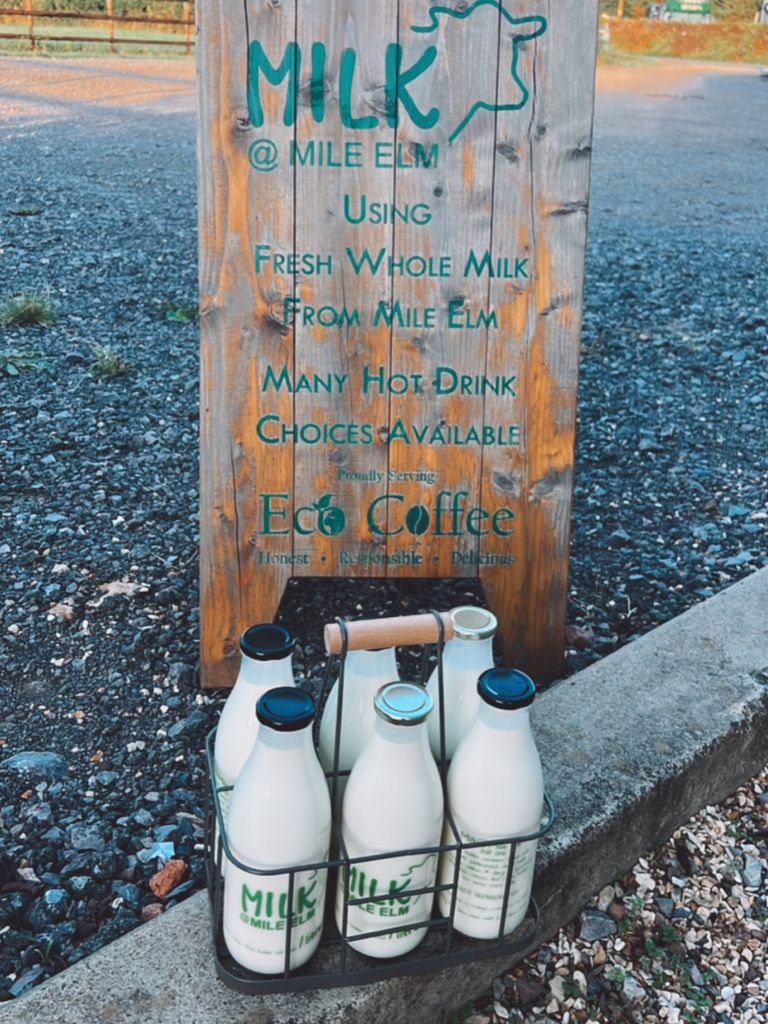 MILK
@ MILE ELM
USING
FRESH WHOLE MILK
FROM MILE ELM
MANY HOT DRINK
CHOICES AVAILABLE
Proudly Serving
Eco Coffee
Honest • Responsible • Delicious
MILK
@MILE ELM
1 litre
MILK
MILE ELM